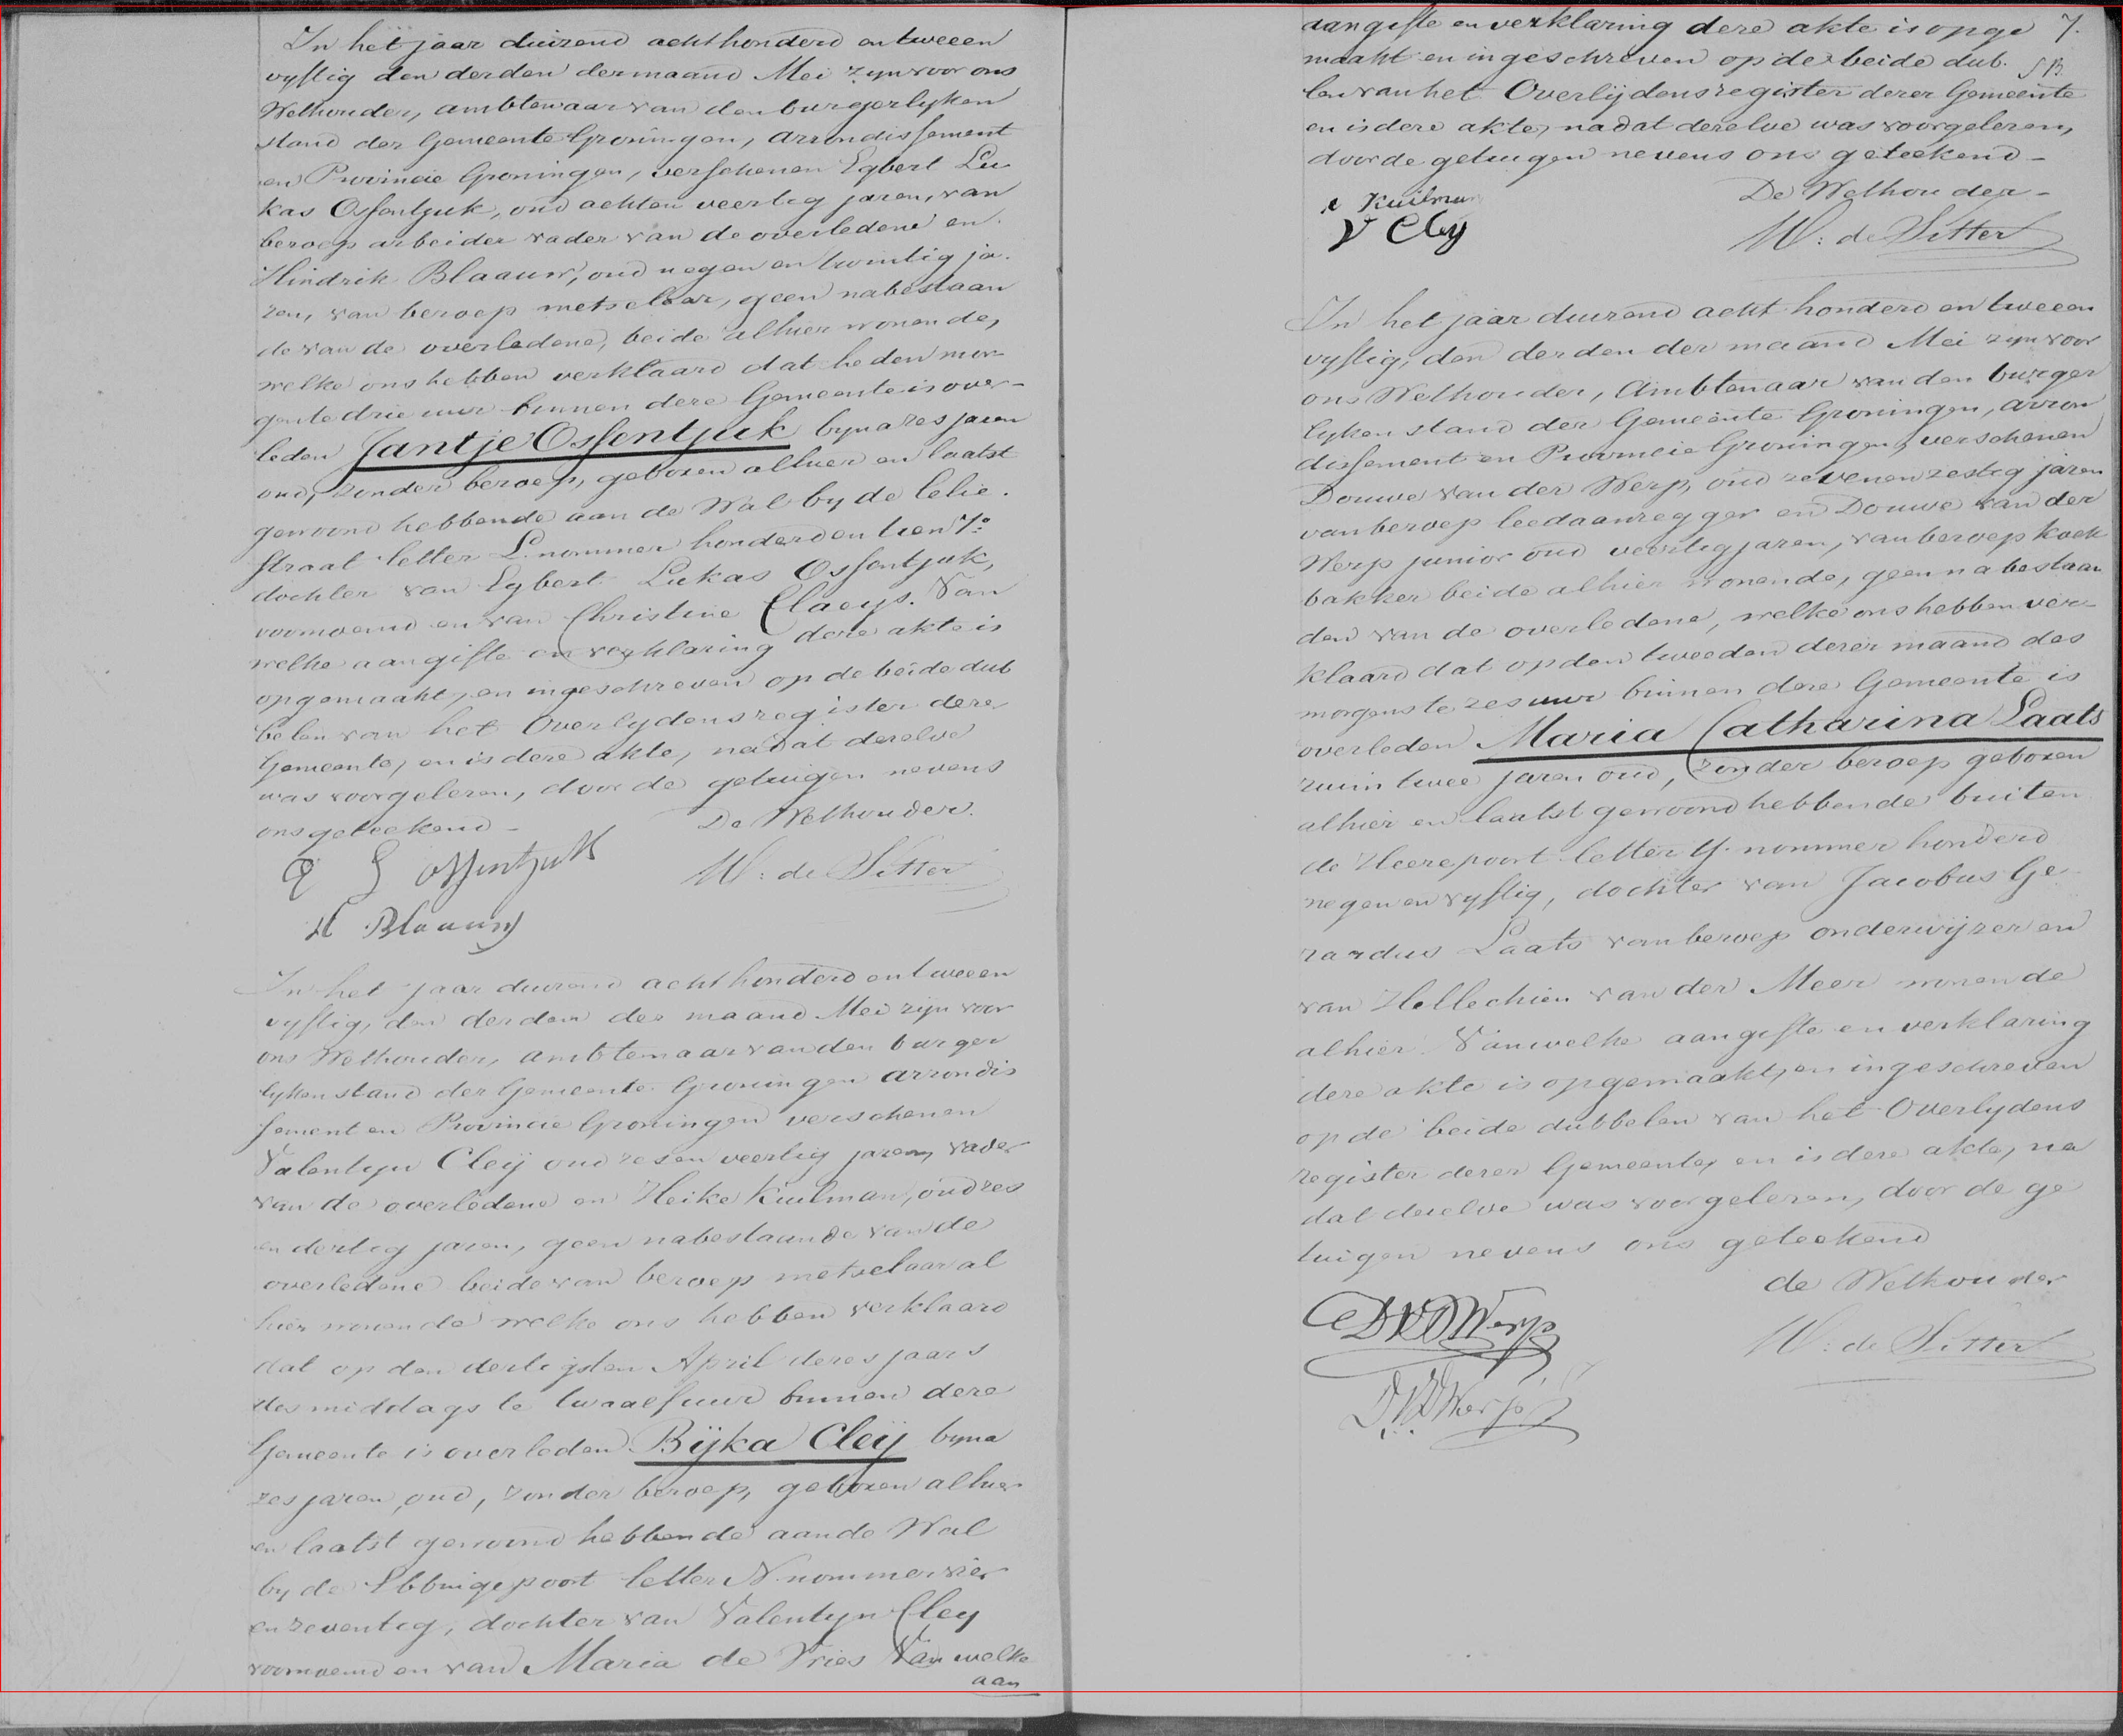 In het jaar duizend achthonderd en tweeen
vyftig den derden der maand Mei zyn voor ons
Wethouder, ambtenaar van den burgerlyken
stand der Gemeente Groningen, arrondissement
en Provincie Groningen, verschenen Egbert Lu
kas Ossentjuk, oud acht en veertig jaren, van
beroep arbeider vader van de overledene en
Hindrik Blaauw, oud negen en twintig ja.
ren, van beroep metselaar, geen nabestaan
de van de overledene, beide alhier wonende,
welke ons hebben verklaard dat heden mor
gen te drie uur binnen deze Gemeente is over-
leden Jantje Ossentjuk byna zes jaren
oud, zonder beroep, geboren alhier en laatst
gewoond hebbende aan de Wal by de Lelie.
straat letter L. nommer honderd en tien 7o
dochter van Egbert Lukas Ossentjuk,
voornoemd en van Christine Claeys. Van
welke aangifte en verklaring deze akte is
opgemaakt, en ingeschreven op de beide dub
belen van het Overlydensregister dezer
Gemeente, en is deze akte, nadat dezelve
was voorgelezen, door de getuigen nevens
ons geteekend - De Wethouder.
E L Ossentjuk W: de Sitter
H Blaauw
In het jaar duizend achthonderd en tweeen
vyftig, den derden der maand Mei zijn voor
ons Wethouder, ambtenaar van den burger
lyken stand der Gemeente Groningen arrondis
sement en Provincie Groningen verschenen
Valentyn Cleÿ oud zes en veertig jaren, vader
van de overledene en Heike Kuilman, oud zes
en dertig jaren, geen nabestaande van de
overledene beide van beroep metselaar al
hier wonende welke ons hebben verklaard
dat op den dertigsten April dezes jaars
des middags te twaalf uur binnen deze
Gemeente is overleden Bijka Cleÿ byna
zes jaren oud, zonder beroep, geboren alhier
en laatst gewoond hebbende aan de Wal
by de Ebbingepoort letter N nommer vier
en zeventig, dochter van Valentyn Cley
voornoemd en van Maria de Vries Van welke
aan
aangifte en verklaring deze akte is opge 7.
maakt en ingeschreven op de beide dub. SB.
len van het Overlijdensregister dezer Gemeente
en is deze akte, nadat dezelve was voorgelezen,
door de getuigen nevens ons geteekend -
Kuilman De Wethouder -
V Cley W: de Sitter
In het jaar duizend acht honderd en tweeen
vyftig, den derden der maand Mei zyn voor
ons Wethouder, Ambtenaar van den burger
lyken stand der Gemeente Groningen, arron
dissement en Provincie Groningen, verschenen
Douwe van der Werp, oud zeven en zestig jaren
van beroep leedaanzegger en Douwe van der
Werp junior oud veertig jaren, van beroep koek
bakker beide alhier wonende, geen nabestaan
den van de overledene, welke ons hebben ver-
klaard dat op den tweeden dezer maand des
morgens te zes uur binnen deze Gemeente is
overleden Maria Catharina Laats
ruim twee jaren oud, zonder beroep geboren
alhier en laatst gewoond hebbende buiten
de Heerepoort letter Y. nommer honderd
negen en vyftig, dochter van Jacobus Ge
rardus Laats van beroep onderwijzer en
van Hellechien van der Meer wonende
alhier. Van welke aangifte en verklaring
deze akte is opgemaakt, en ingeschreven
op de beide dubbelen van het Overlydens
register dezer Gemeente, en is deze akte, na
dat dezelve was voorgelezen, door de ge
tuigen nevens ons geteekend
de Wethouder
DVDWerp W: de Sitter
DVDWerp